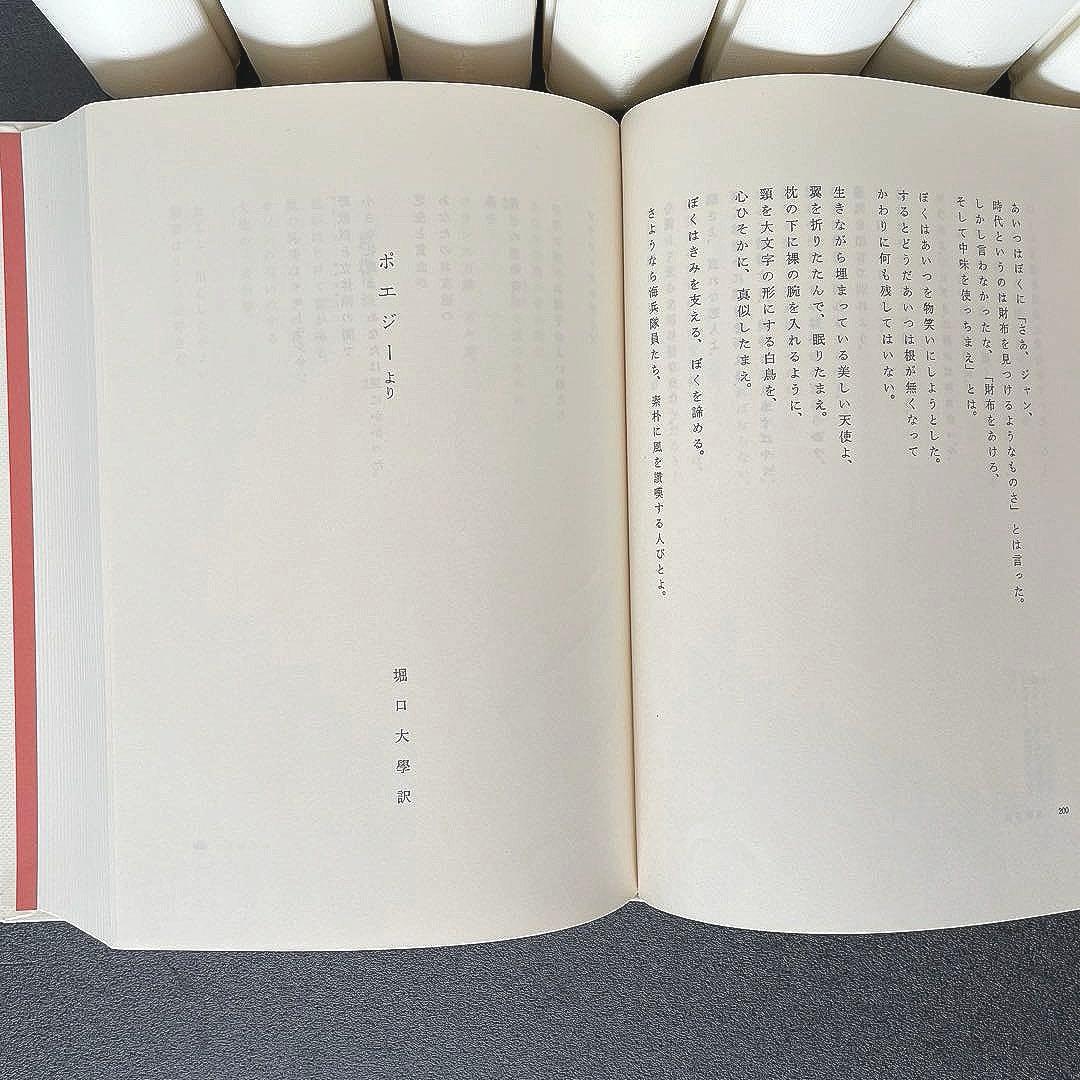 あいつはぼくに「さあ、ジャン、
時代というのは財布を見つけるようなものさ」とは言った。
しかし言わなかったな、「財布をあけろ、
そして中味を使っちまえ」とは。
ぼくはあいつを物笑いにしようとした。
するとどうだあいつは根が無くなって
かわりに何も残してはいない。
生きながら埋まっている美しい天使よ、
翼を折りたたんで、眠りたまえ。
枕の下に裸の腕を入れるように、
頸を大文字の形にする白鳥を、
心ひそかに、真似したまえ。
ぼくはきみを支える、ぼくを諦める。
さようなら海兵隊員たち、素朴に風を讃嘆する人びとよ。
200
ポエジーより
堀口大學訳